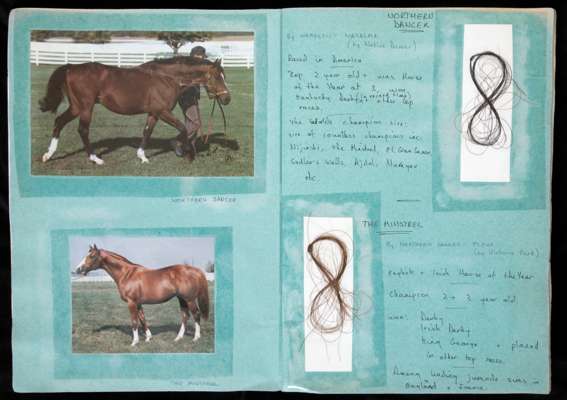 NORTHERN DANCER
NORTHERN
DANCER
By NEARCTIC - NATALMA
(by Native Dancer)
Raced in America
Top 2 year old + was Horse
of the Year at 3, won
Kentucky Derby (record time) + other top
races.
The champion sire:
sire of countless champions inc.
Nijinski, The Minstrel, El Gran Senor,
Sadler's Wells, Ajdal, Nureyev
etc
THE MINSTREL
THE MINSTREL
By NORTHERN DANCER - FLEUR
(by Victoria Park)
English + Irish Horse of the Year
Champion 2 + 3 year old
Won: Derby
Irish Derby
King George + placed
in other top races.
Among leading juvenile sires in
England + France.